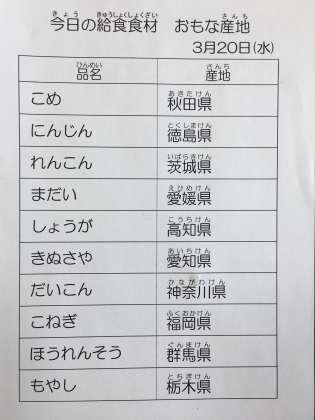 今日の給食食材 おもな産地
3月20日(水)
品名 産地
こめ 秋田県
にんじん 徳島県
れんこん 茨城県
まだい 愛媛県
しょうが 高知県
きぬさや 愛知県
だいこん 神奈川県
こねぎ 福岡県
ほうれんそう 群馬県
もやし 栃木県